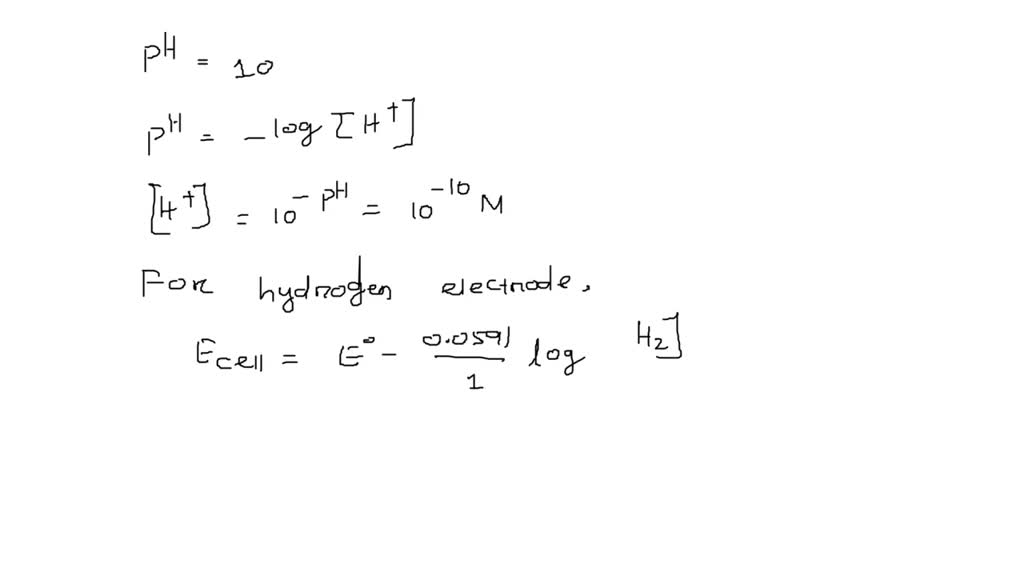 pH = 10
pH = -log [H⁺]
[H⁺] = 10⁻ᵖᴴ = 10⁻¹⁰ M
For hydrogen electrode,
Ecell = E° - 0.0591/1 log H₂]